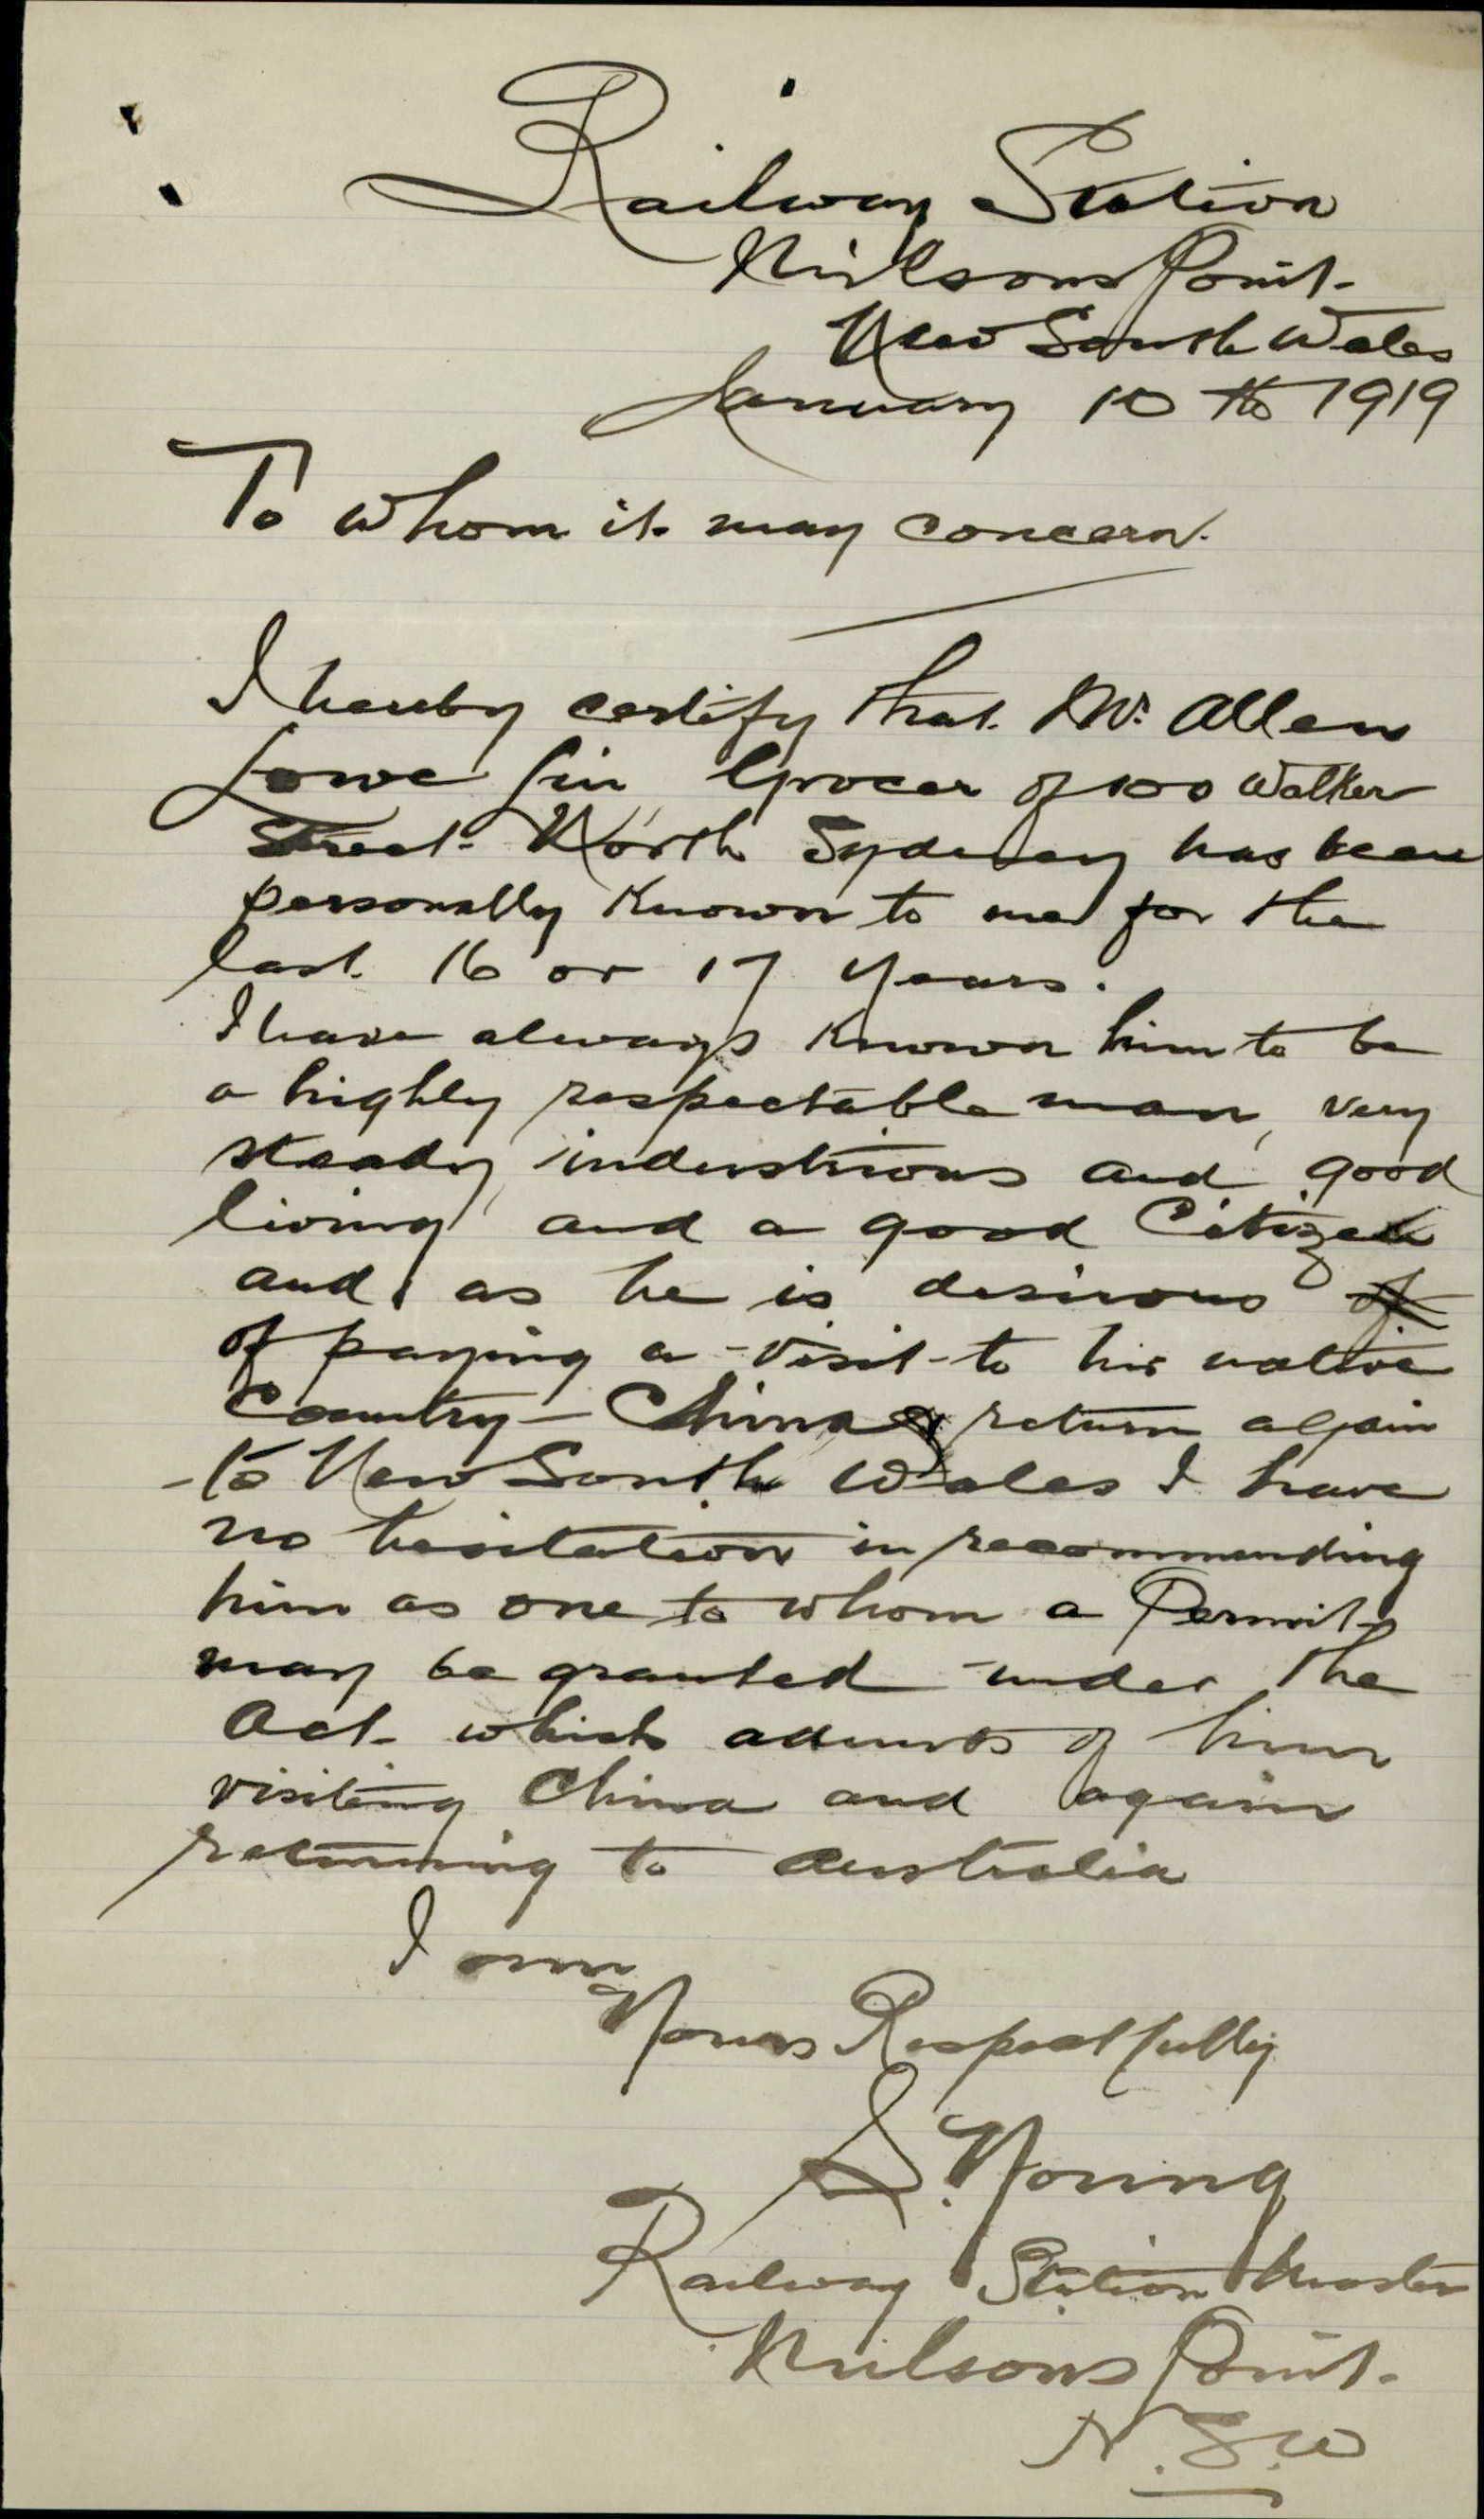 Railway Station
Milsons Point
New South Wales
January 10th 1919
To whom it may concern.
I hereby certify that Mr. Allen
Lowe Jin Grocer of 100 Walker
Street North Sydney has been
personally known to me for the
last 16 or 17 years.
I have always known him to be
a highly respectable man, very
steady industrious and good
living and a good Citizen
and as he is desirous of
of paying a visit to his native
Country - China & return again
to New South Wales I have
no hesitation in recommending
him as one to whom a Permit
may be granted under the
Act which admits of him
visiting China and again
returning to Australia
I am
Yours Respectfully
S. Young
Railway Station Master
Milsons Point
N.S.W